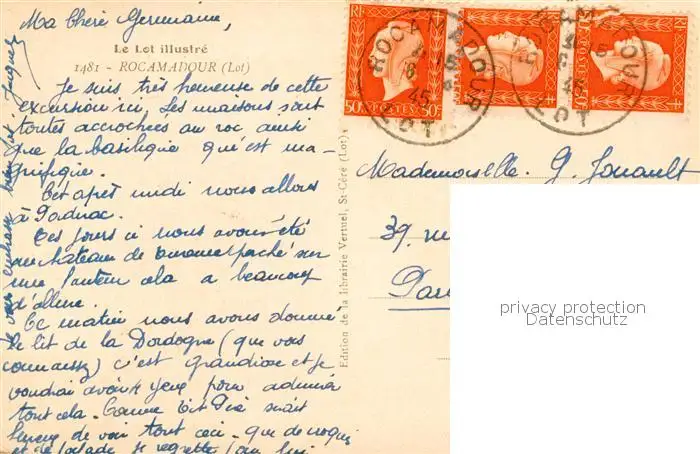 Ma Chère Germaine,
Le Lot illustré
1481 - ROCAMADOUR (Lot)
Je suis très heureuse de cette
excursion ici. Les maisons sont
toutes accrochées au roc ainsi
que la basilique qu'est ma-
gnifique.
Cet après midi nous allons
à Padirac.
Ces jours ci nous avons été
au château de perché sur
une hauteur cela a beaucoup
d'allure.
Ce matin nous avons
le lit de la Dordogne (que vous
connaissez) c'est grandiose et je
voudrai avoir yeux pour admirer
tout cela. Comme serait
heureux de voir tout ceci - que de croquis
et de je regrette
je vous embrasse bien fort Jacques
Edition de la librairie Vertuel, St-Céré (Lot)
RF RF RF
50c POSTES 50c
ROCAMADOUR
15
6
45
LOT
ROCAMADOUR
15
6
45
LOT
Mademoiselle G. Jouault
39, rue
privacy protection
Datenschutz